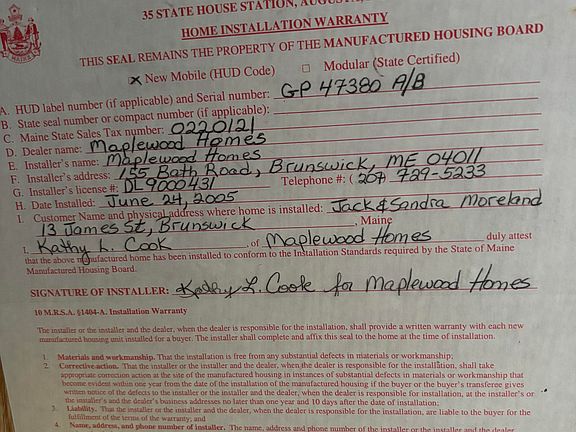 35 STATE HOUSE STATION, AUGUSTA,
HOME INSTALLATION WARRANTY
THIS SEAL REMAINS THE PROPERTY OF THE MANUFACTURED HOUSING BOARD
x New Mobile (HUD Code) □ Modular (State Certified)
A. HUD label number (if applicable) and Serial number: GP 47380 A/B
B. State seal number or compact number (if applicable):
C. Maine State Sales Tax number: 0220121
D. Dealer name: Maplewood Homes
E. Installer's name: Maplewood Homes
F. Installer's address: 155 Bath Road, Brunswick, ME 04011
G. Installer's license #: DL9000431 Telephone #: (207 729-5233
H. Date Installed: June 24, 2005
I. Customer Name and physical address where home is installed: Jack & Sandra Moreland
13 James St, Brunswick, Maine
I, Kathy L. Cook, of Maplewood Homes duly attest
that the above manufactured home has been installed to conform to the Installation Standards required by the State of Maine
Manufactured Housing Board.
SIGNATURE OF INSTALLER: Kathy L. Cook for Maplewood Homes
10 M.R.S.A. §1404-A. Installation Warranty
The installer or the installer and the dealer, when the dealer is responsible for the installation, shall provide a written warranty with each new
manufactured housing unit installed for a buyer. The installer shall complete and affix this seal to the home at the time of installation.
1. Materials and workmanship. That the installation is free from any substantial defects in materials or workmanship;
2. Corrective action. That the installer or the installer and the dealer, when the dealer is responsible for the installation, shall take
appropriate corrective action at the site of the manufactured housing in instances of substantial defects in materials or workmanship that
become evident within one year from the date of the installation of the manufactured housing if the buyer or the buyer's transferee gives
written notice of the defects to the installer or the installer and the dealer, when the dealer is responsible for installation, at the installer's or
the installer's and the dealer's business addresses no later than one year and 10 days after the date of installation;
3. Liability. That the installer or the installer and the dealer, when the dealer is responsible for the installation, are liable to the buyer for the
fulfillment of the terms of the warranty; and
4. Name, address, and phone number of installer. The name, address and phone number of the installer or the installer and the dealer